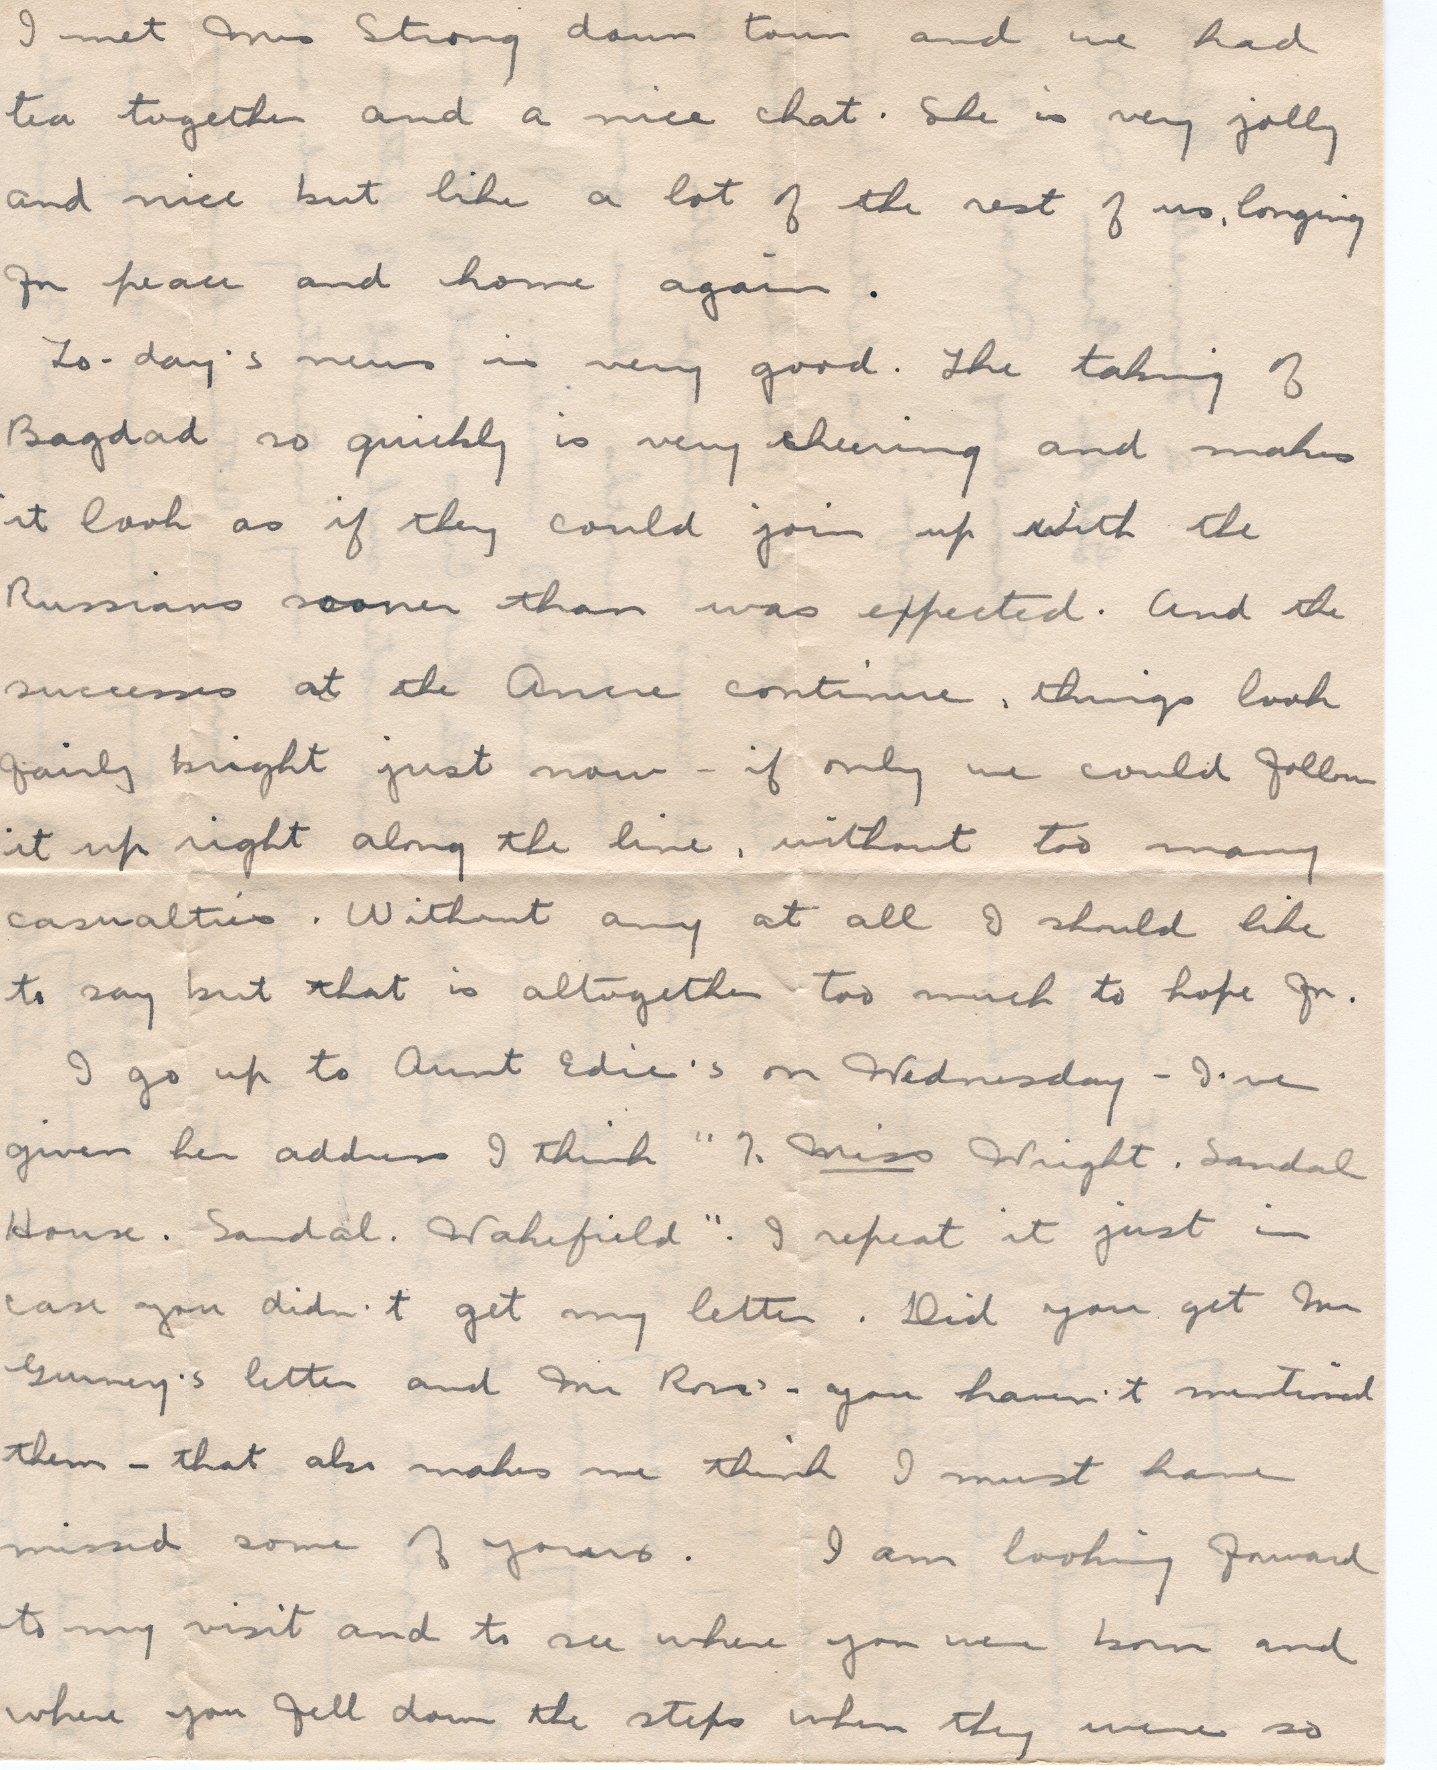 I met Mrs Strong down town and we had
tea together and a nice chat. She is very jolly
and nice but like a lot of the rest of us, longing
for peace and home again.
To-day's news is very good. The taking of
Bagdad so quickly is very cheering and makes
it look as if they could join up with the
Russians sooner than was expected. And the
successes at the Ancre continue, things look
fairly bright just now - if only we could follow
it up right along the line, without too many
casualties. Without any at all I should like
to say but that is altogether too much to hope for.
I go up to Aunt Edie's on Wednesday - I've
given her address I think " Miss Wright. Sandal
House. Sandal. Wakefield". I repeat it just in
case you didn't get my letter. Did you get Mr
Gurney's letter and Mr Ross' - you haven't mentioned
them - that also makes me think I must have
missed some of yours. I am looking forward
to my visit and to see where you were born and
where you fell down the steps when they were so